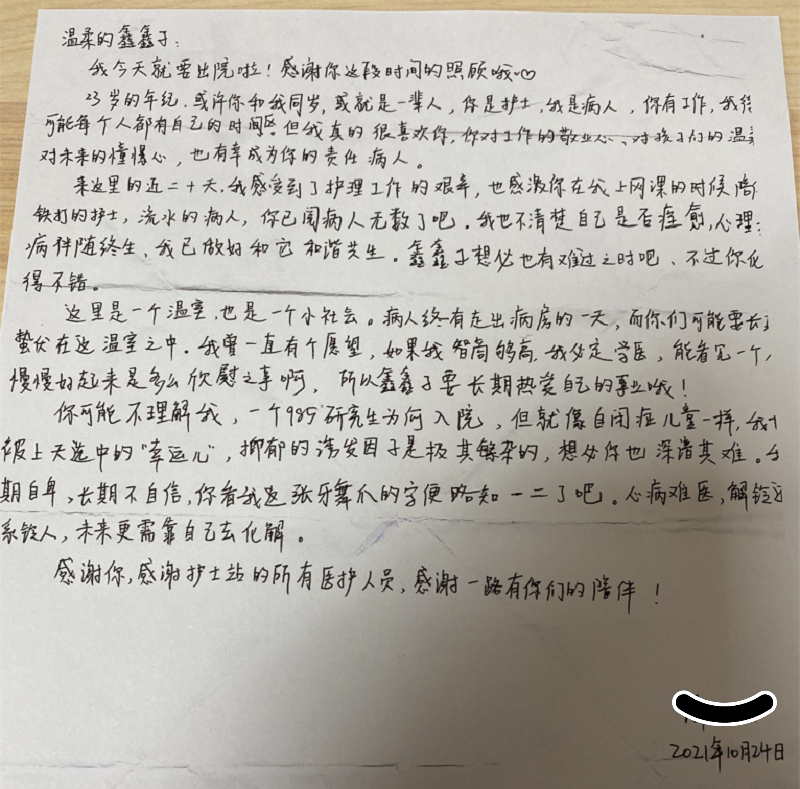 温柔的鑫鑫子：
我今天就要出院啦！感谢你这段时间的照顾哦~♡
23岁的年纪，或许你和我同岁，或就是一辈人，你是护士，我是病人，你有工作，我
可能每个人都有自己的时间区 但我真的很喜欢你，你对工作的敬业心、对孩子们的温
对未来的憧憬心，也有幸成为你的责任病人。
来这里的近二十天，我感受到了护理工作的艰辛，也感激你在我上网课的时候陪
铁打的护士，流水的病人，你已阅病人无数了吧。我也不清楚自己是否痊愈，心理
病伴随终生、我已做好和它和谐共生。鑫鑫子想必也有难过之时吧、不过你化
得不错。
这里是一个温室，也是一个小社会。病人终有走出病房的一天，而你们可能要长
蛰伏在这温室之中。我曾一直有个愿望，如果我智商够高，我必定学医，能看见一个
慢慢好起来是多么欣慰之事啊，所以鑫鑫子要长期热爱自己的事业哦！
你可能不理解我，一个985研究生为何入院，但就像自闭症儿童一样，我
被上天选中的“幸运儿”，抑郁的诱发因子是极其繁杂的，想必你也深谙其难。
期自卑，长期不自信，你看我这张牙舞爪的字便略知一二了吧。心病难医，解铃
系铃人，未来更需靠自己去化解。
感谢你，感谢护士站的所有医护人员，感谢一路有你们的陪伴！
2021年10月24日